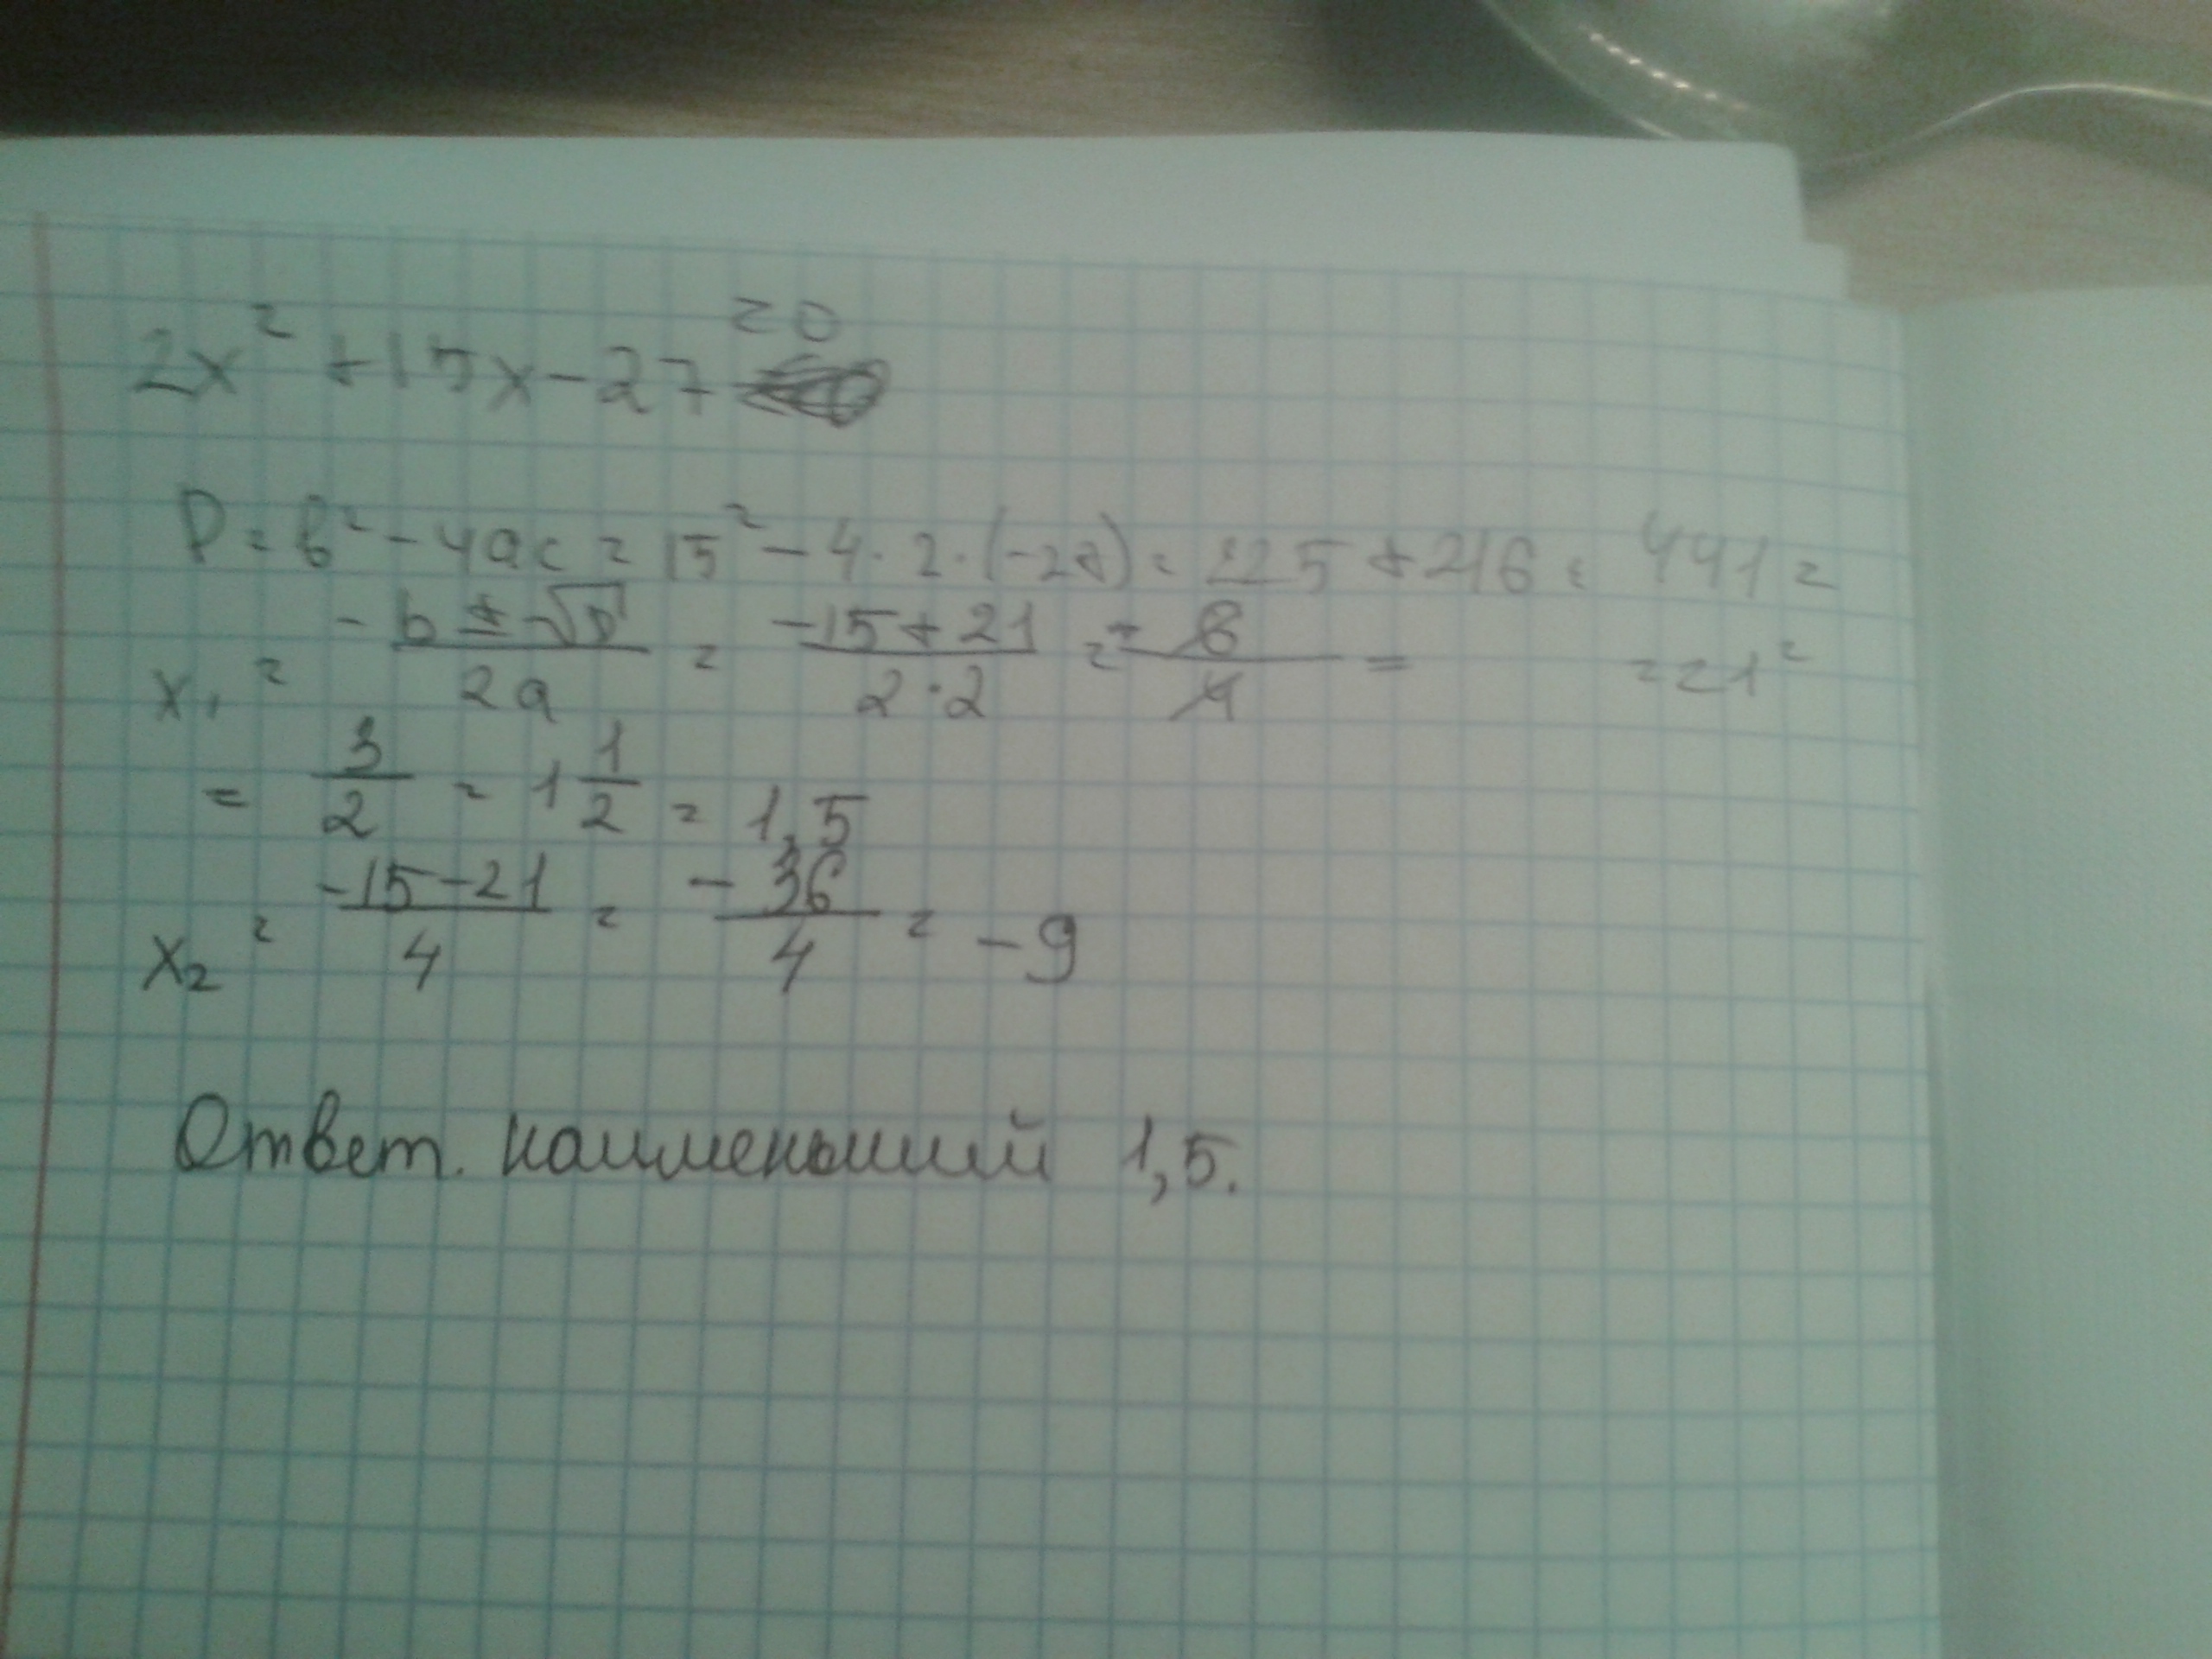 2x² + 15x - 27 = 0
D = b² - 4ac = 15² - 4 · 2 · (-27) = 225 + 216 = 441 =
= 21²
x₁ = (-b ± √D)/(2a) = (-15 + 21)/(2 · 2) = + 6/4 =
= 3/2 = 1 1/2 = 1,5
x₂ = (-15 - 21)/4 = -36/4 = -9
Ответ. наименьший 1,5.